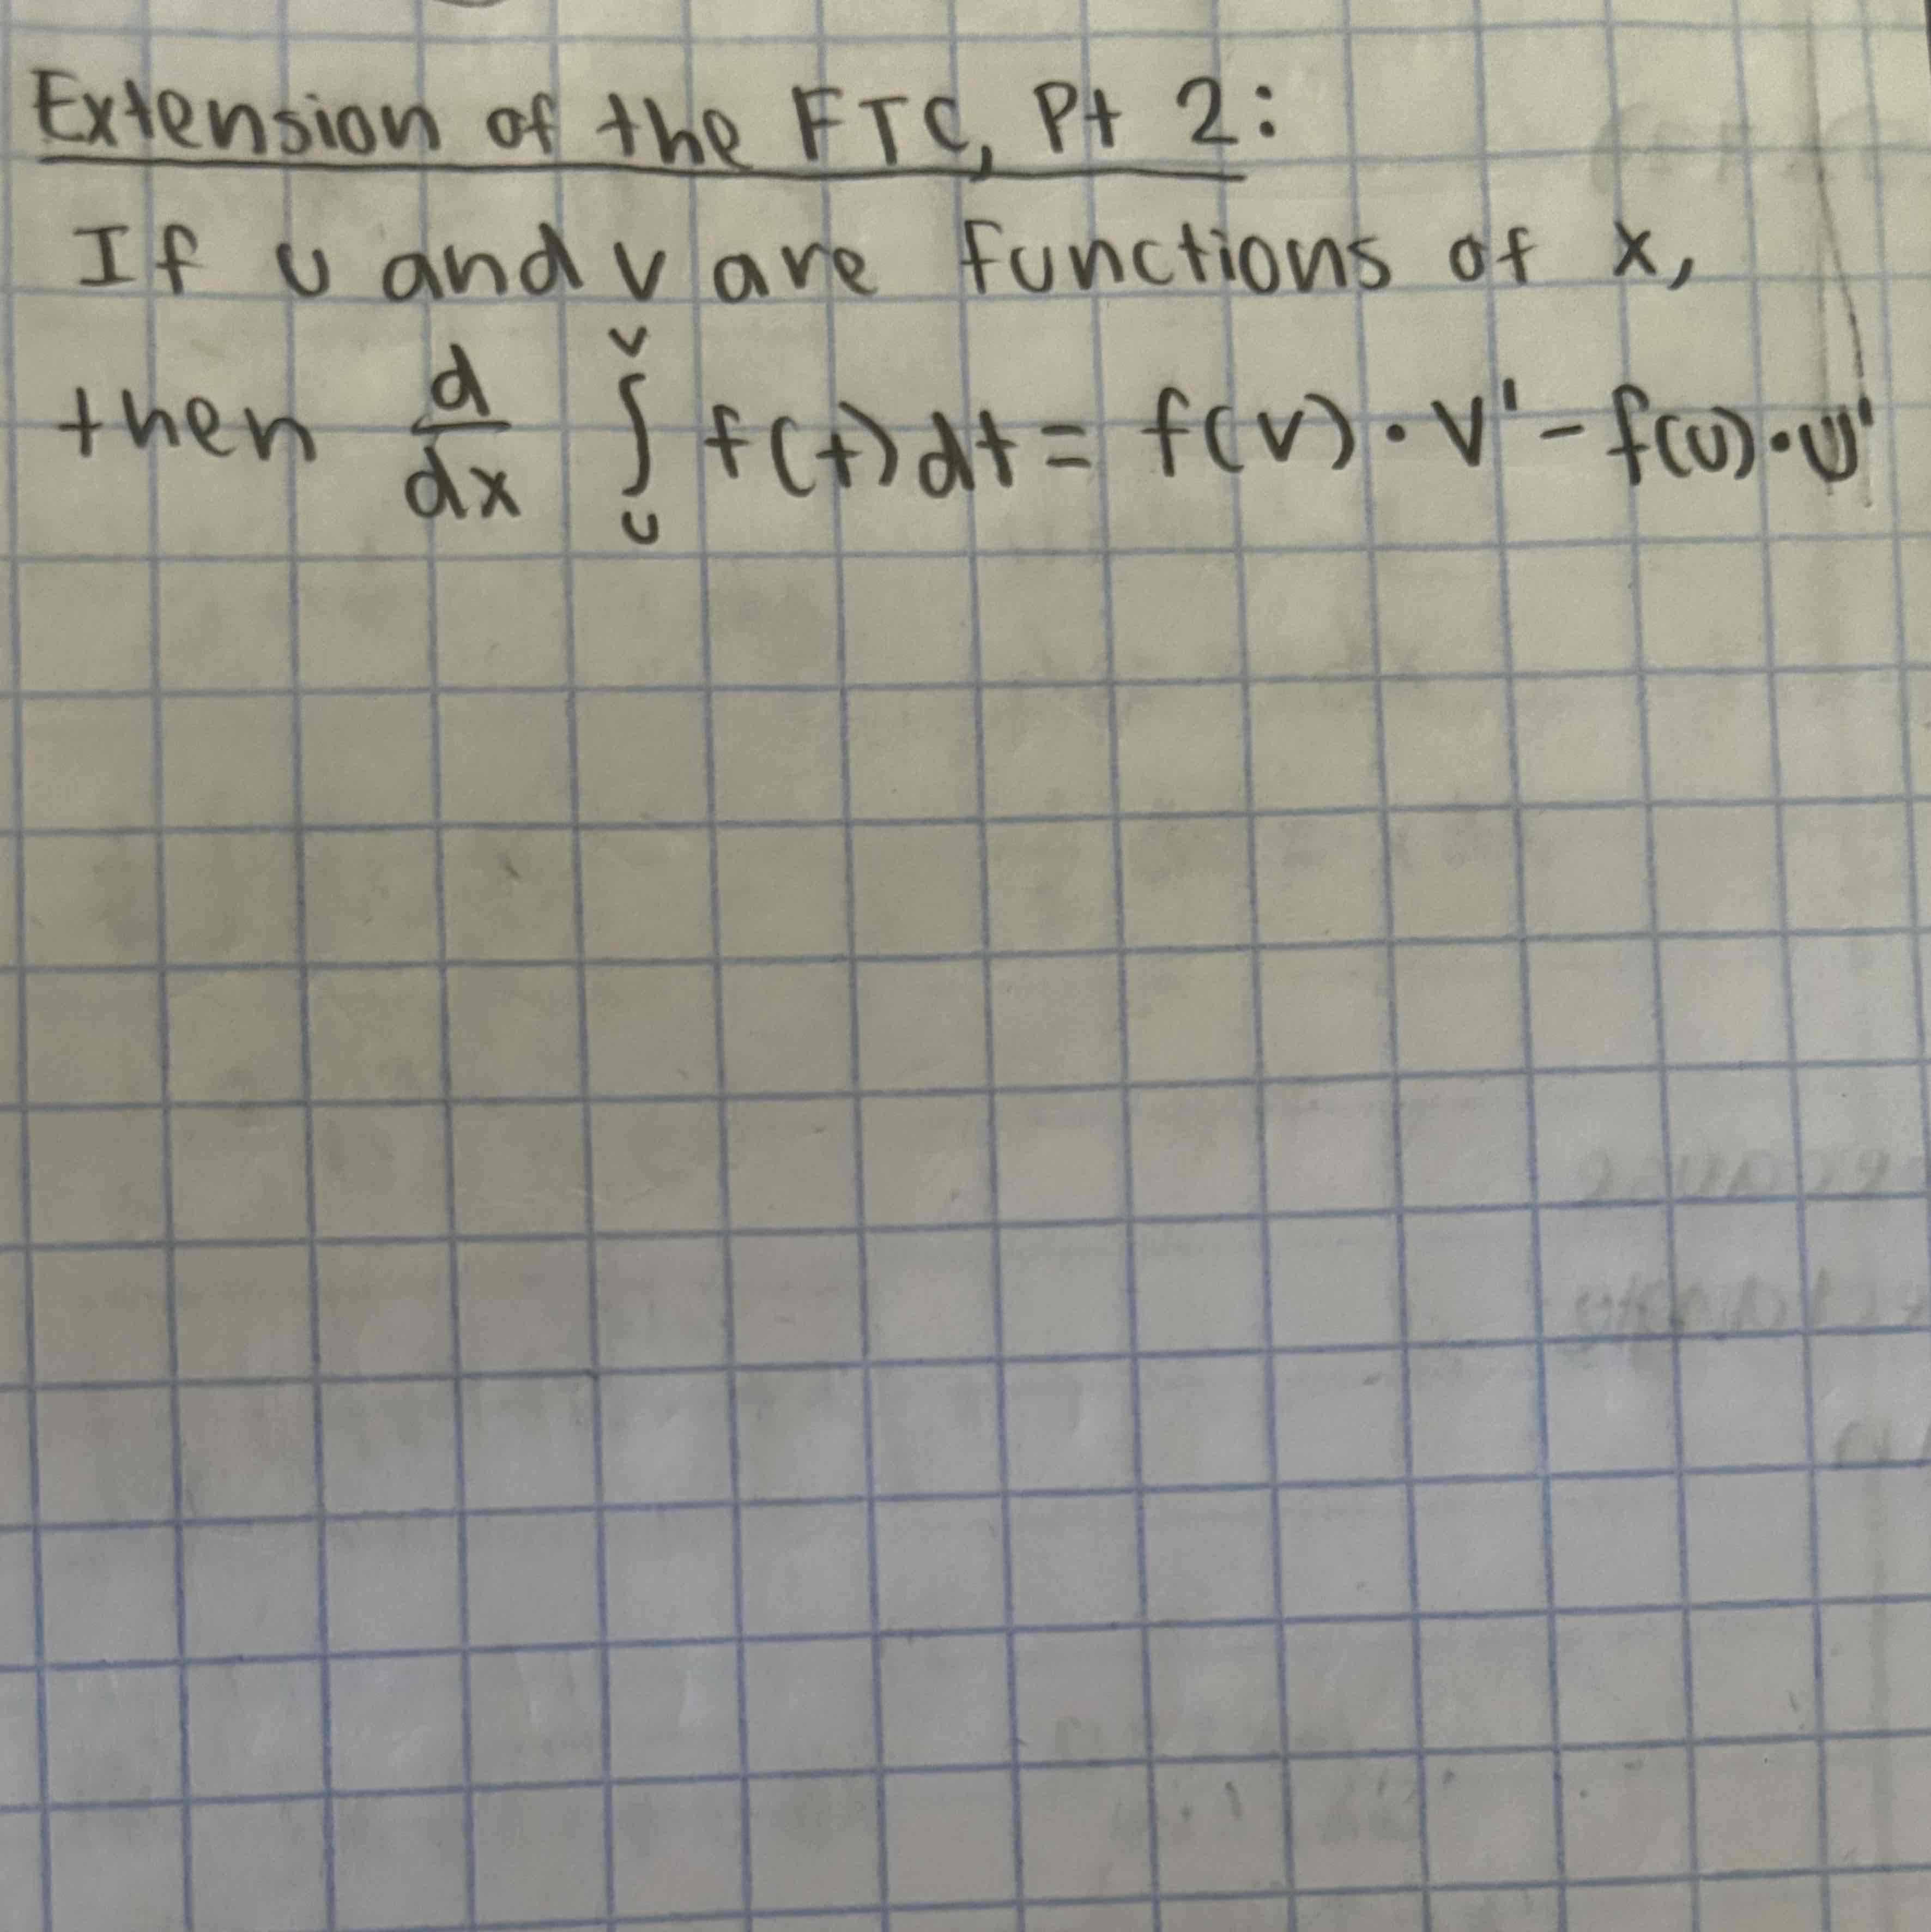 Extension of the FTC, Pt 2:
If u and v are functions of x,
then d/dx ∫_u^v f(t)dt = f(v)·v' - f(u)·u'